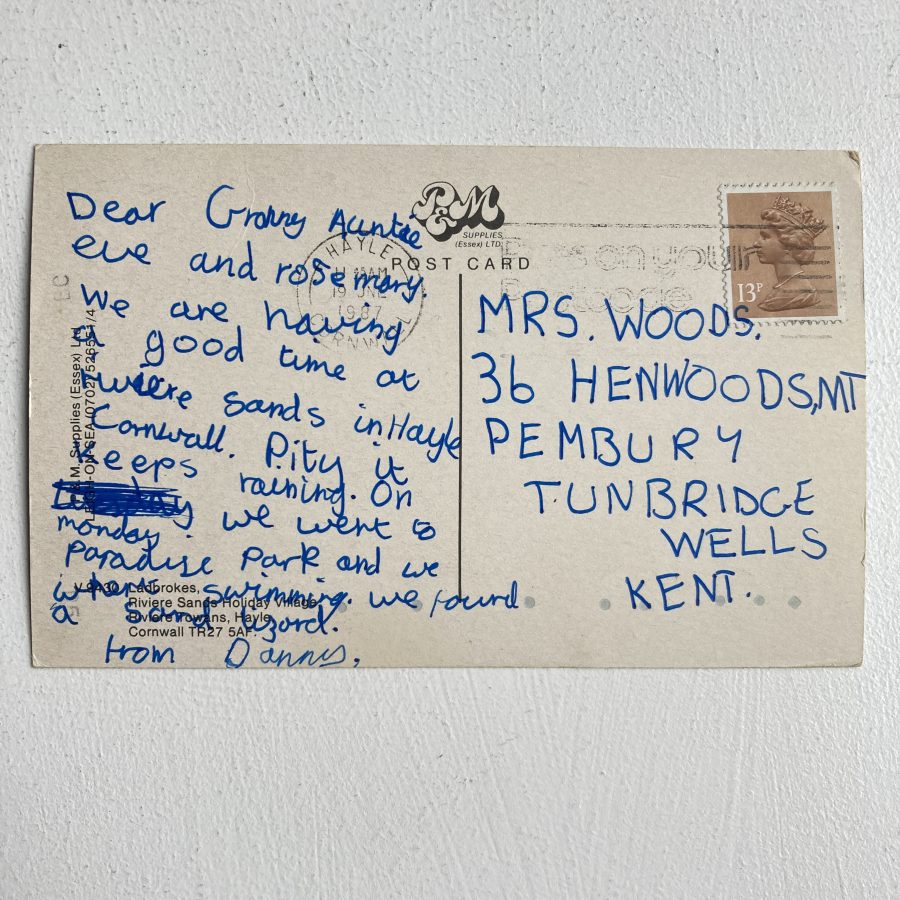 Dear Granny Auntie
eve and rosemary.
We are having
a good time at
sands in Hayle
Cornwall. Pity it
keeps raining. On
monday. we went to
Paradise Park and we
swimming. we found
a sand lizard.
from Dannys.
P&M
SUPPLIES
(Essex) LTD.
POST CARD
HAYLE
AM
19 JNE
1987
CORNWALL
on your
Postcode
13P
MRS. WOODS.
36 HENWOODS, MT
PEMBURY
TUNBRIDGE
WELLS
KENT.
P.&M. Supplies (Essex) Ltd.
LEIGH-ON-SEA (0702)
Ladbrokes,
Riviere Sands Holiday Village,
Riviere Towans, Hayle,
Cornwall TR27 5AF.